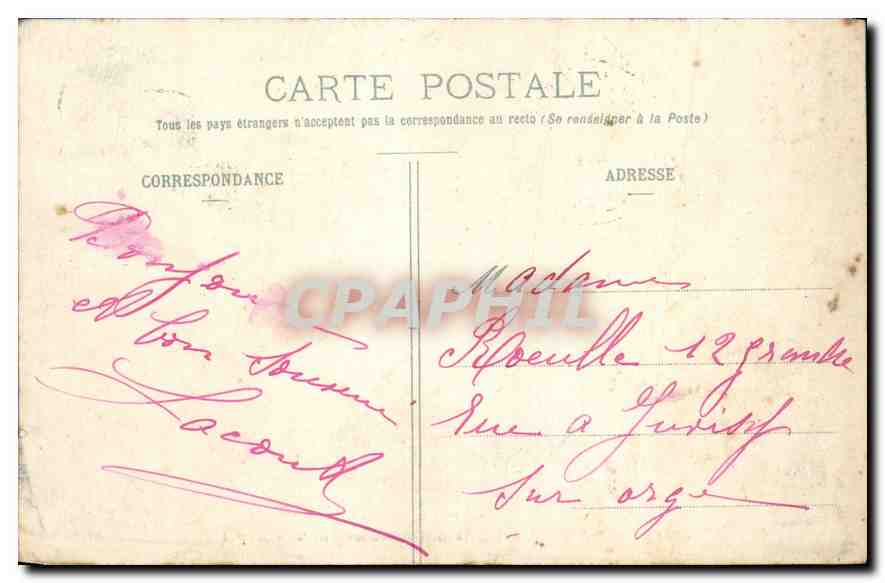 CARTE POSTALE
Tous les pays étrangers n'acceptent pas la correspondance au recto (Se renseigner à la Poste)
CORRESPONDANCE
ADRESSE
Bonjour
et bon
Lacoult
Madame
Roeulle 12 grande
rue a Juvisy
sur orge
CPAPHIL